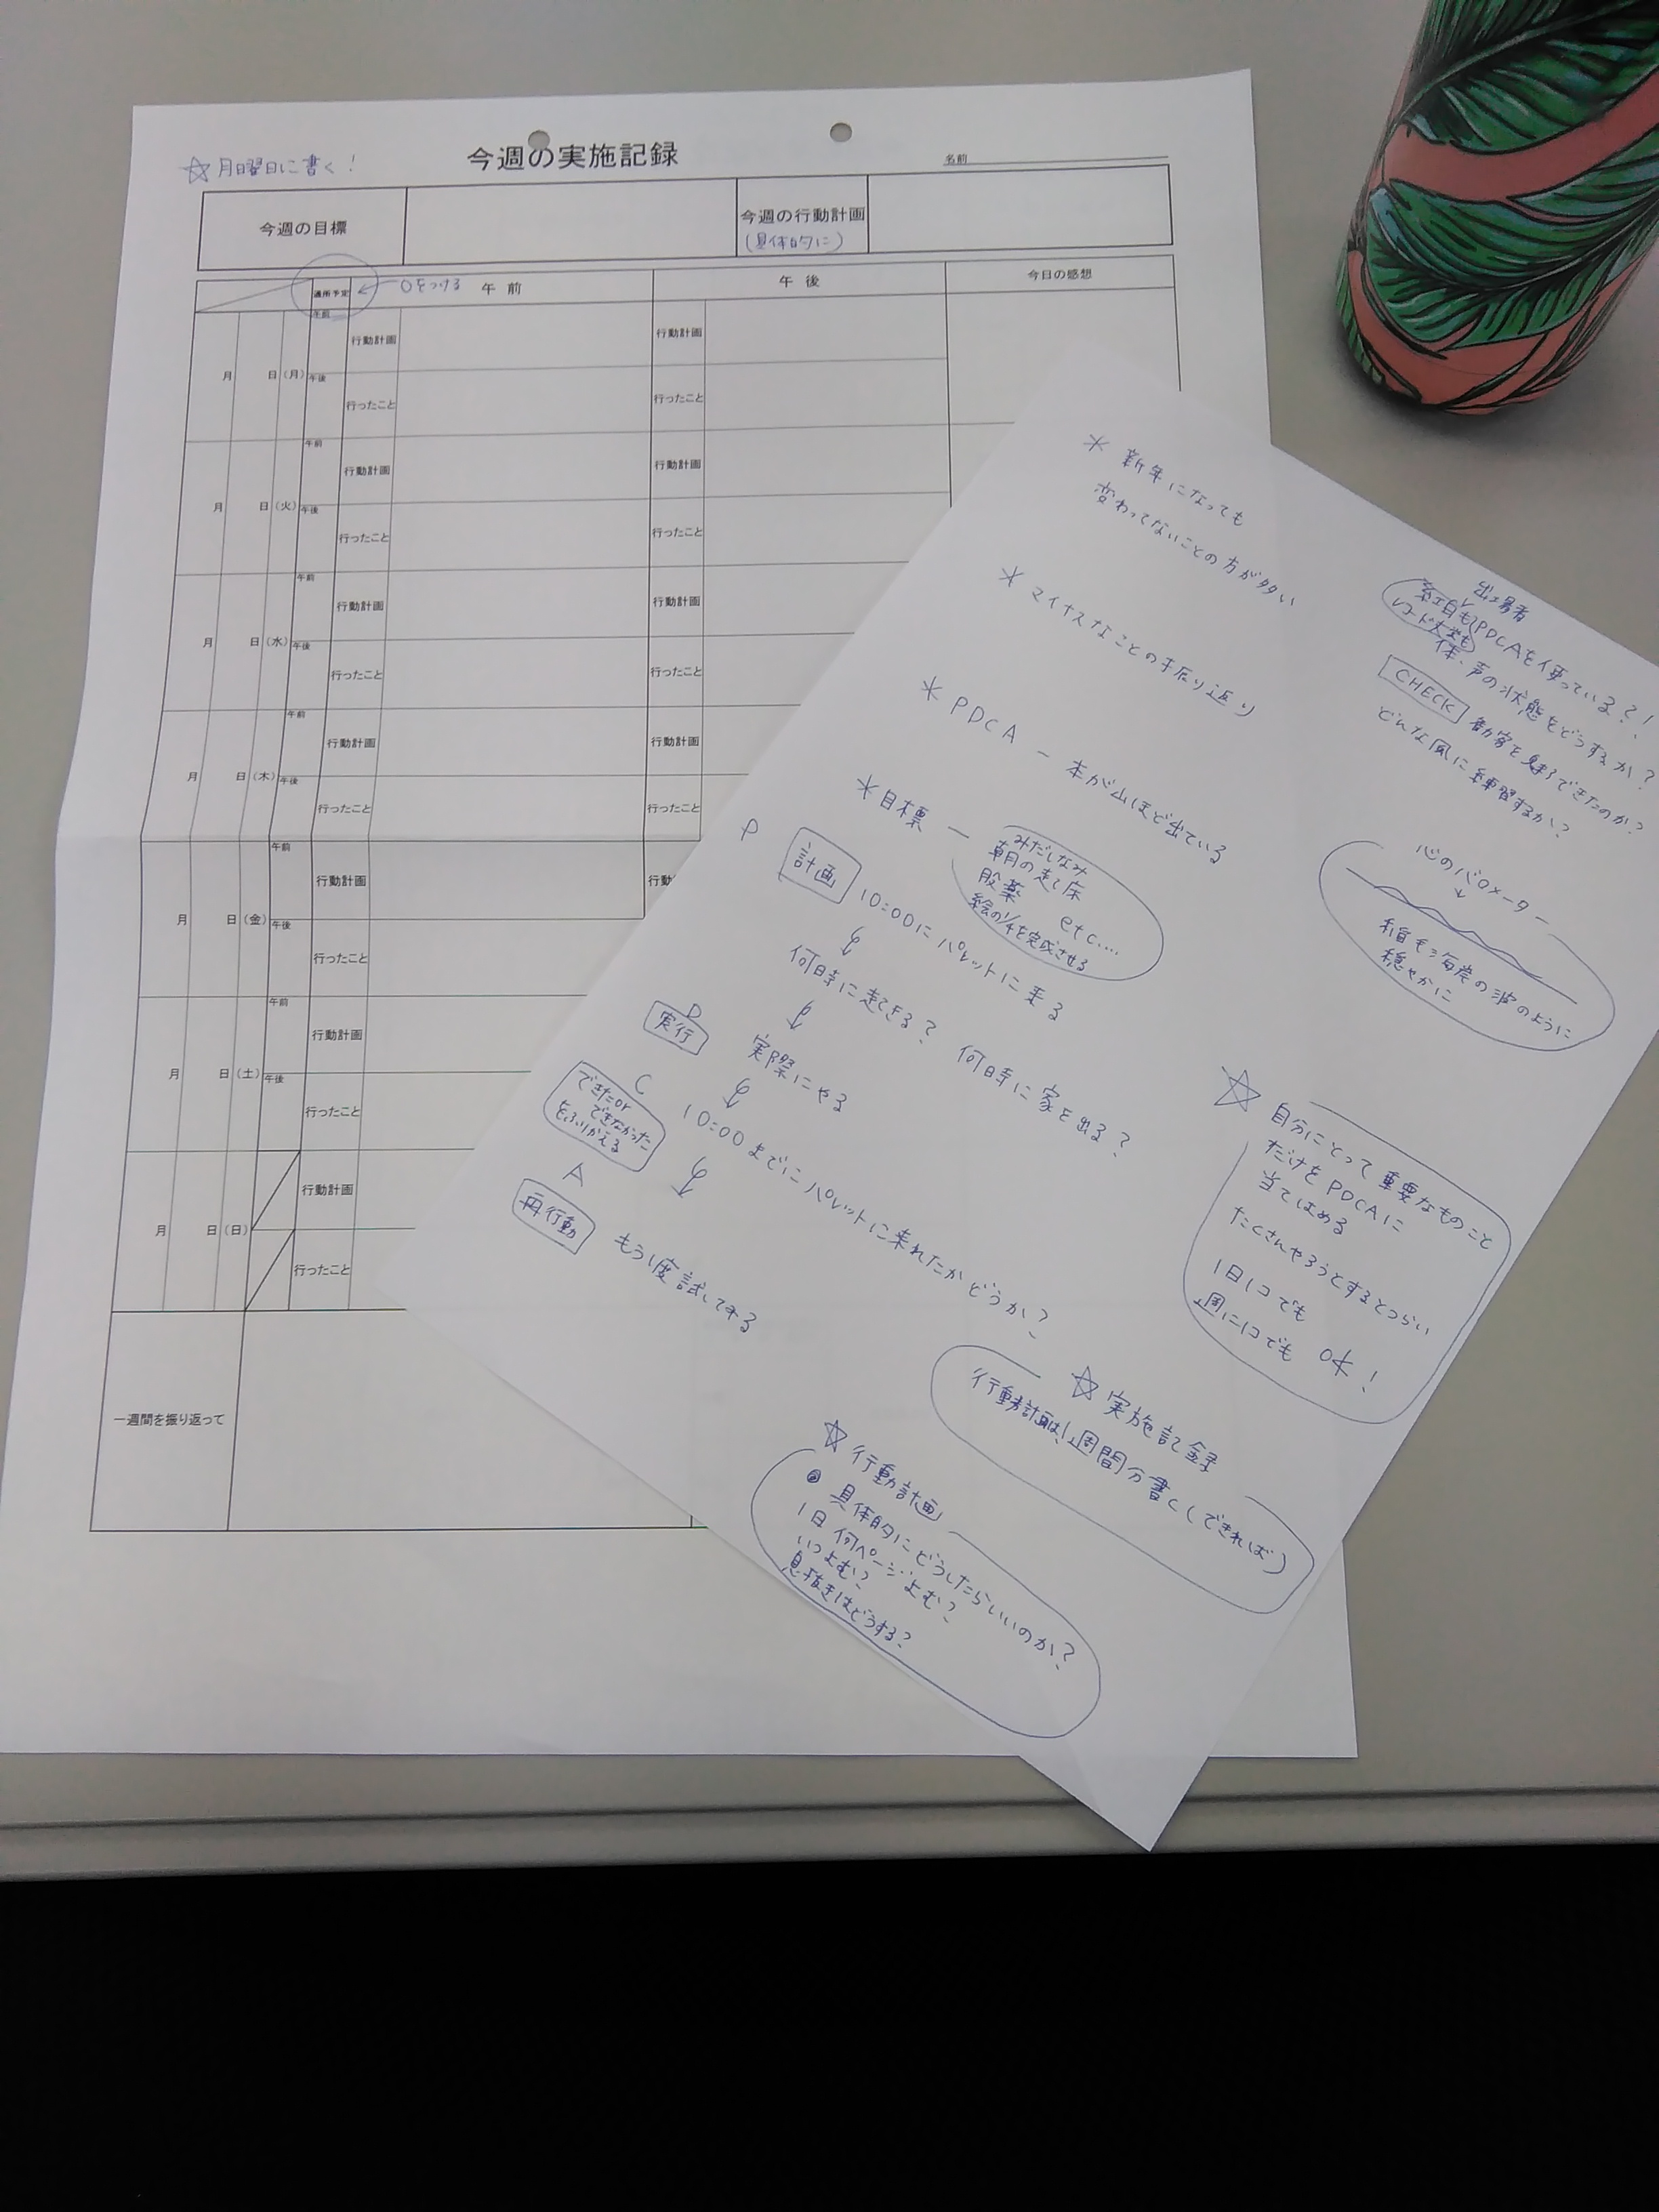 ☆月曜日に書く!
今週の実施記録
名前
今週の目標
今週の行動計画
(具体的に)
通所予定
←○をつける
午前
午後
今日の感想
月 日(月)
午前
午後
行動計画
行ったこと
行動計画
行ったこと
月 日(火)
午前
午後
行動計画
行ったこと
行動計画
行ったこと
月 日(水)
午前
午後
行動計画
行ったこと
行動計画
行ったこと
月 日(木)
午前
午後
行動計画
行ったこと
行動計画
行ったこと
月 日(金)
午前
午後
行動計画
行ったこと
行動
月 日(土)
午前
午後
行動計画
行ったこと
月 日(日)
行動計画
行ったこと
一週間を振り返って
* 新年になっても
変わってないことの方が多い
* マイナスなことの振り返り
* PDCA - 本が山ほど出ている
* 目標 -
みだしなみ
朝の起床
服薬 etc....
絵の1/4を完成させる
P
計画
10:00にパレットに来る
↓
何時に起きる? 何時に家を出る?
↓
D
実行
実際にやる
↓
C
できたor
できなかった
をふりかえる
10:00までにパレットに来れたかどうか?
↓
A
再行動
もう1度試してみる
出場者
紅白も
レコード大賞も
PDCAを使っている?!
体、声の状態をどうするか?
CHECK 観客を魅了できたのか?
どんな風に練習するか?
心のバロメーター
↓
稲毛海岸の波のように
穏やかに
☆ 自分にとって重要なものこと
だけをPDCAに
当てはめる
たくさんやろうとするとつらい
1日1コでも
週に1コでも OK!
☆ 実施記録
行動計画は1週間分書く(できれば)
☆ 行動計画
具体的にどうしたらいいのか?
1日何ページよむ?
いつよむ?
息抜きはどうする?